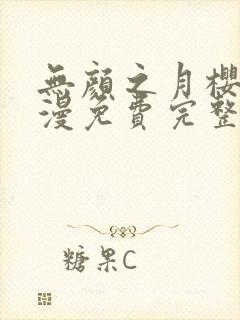 無顏之月櫻
漫免費完整
糖果C